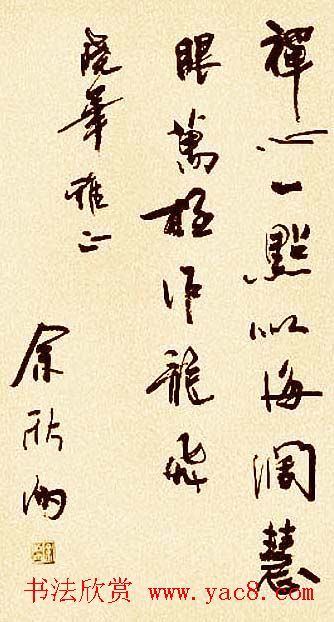 禪心一點似海阔慧
眼萬程作龍飛
晓華雅正
余秋雨
书法欣赏 www.yac8.com